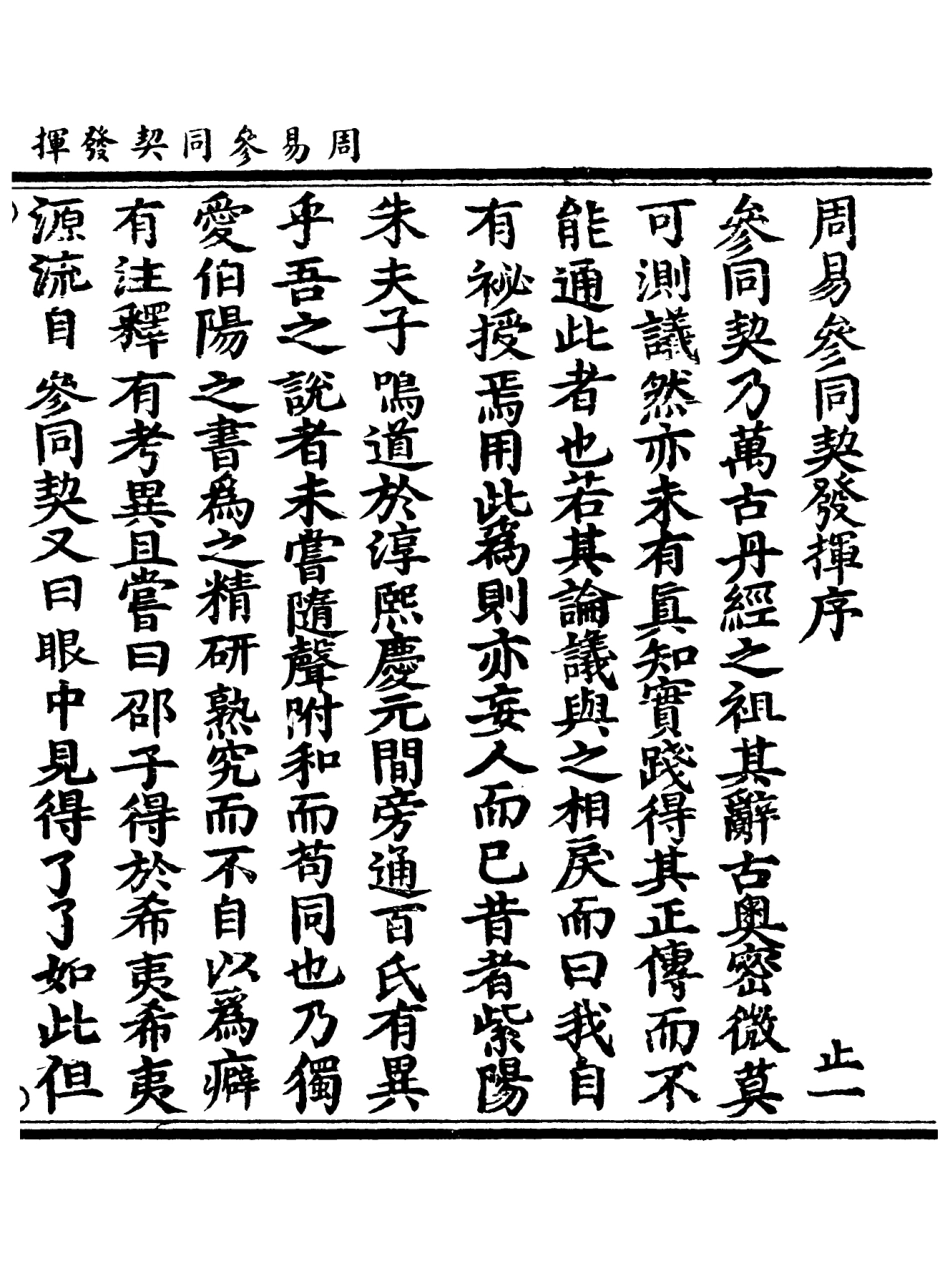 周易參同契發揮
周易參同契發揮序　止一
參同契乃萬古丹經之祖其辭古奧密微莫
可測議然亦未有真知實踐得其正傳而不
能通此者也若其論議與之相戾而曰我自
有祕授焉用此爲則亦妄人而已昔者紫陽
朱夫子鳴道於淳熙慶元間旁通百氏有異
乎吾之說者未嘗隨聲附和而苟同也乃獨
愛伯陽之書爲之精研熟究而不自以爲癖
有注釋有考異且嘗曰邵子得於希夷希夷
源流自參同契又曰眼中見得了了如此但